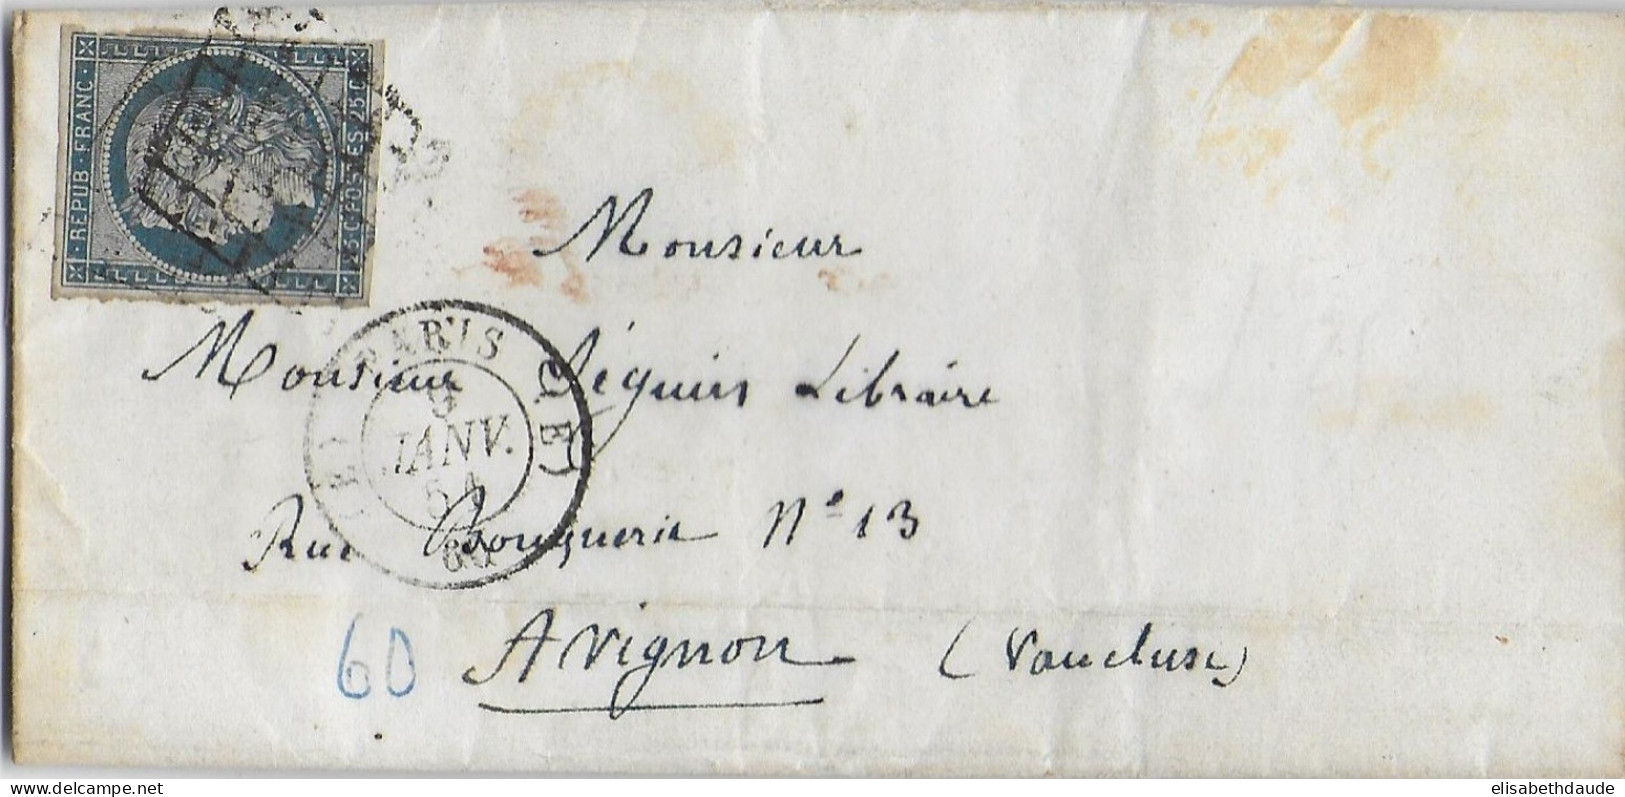 REPUB · FRANC ·
25 C · POSTES 25 C
PARIS
(E)
JANV.
51
60
Monsieur
Monsieur Séguin Libraire
Rue Bouquerie N° 13
Avignon (Vaucluse)
60
delcampe.net
elisabethdaude